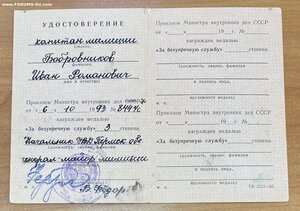 www.FORUMS-SU.com
УДОСТОВЕРЕНИЕ
капитан милиции
(звание,
Бобровников
фамилия,
Иван Романович
имя и отчество)
Приказом Министра внутренних дел
от « 6 » 10 1993 № 844
награжден медалью
«За безупречную службу» 3 степени.
генерал-майор милиции
В. Федоров
Приказом Министра внутренних дел СССР
от « » 19 г. №
награжден медалью
«За безупречную службу» степени.
(должность, звание, фамилия
и подпись лица,
вручившего медаль)
М. П.
Приказом Министра внутренних дел СССР
от « » 19 г. №
награжден медалью
«За безупречную службу» степени.
(должность, звание, фамилия
и подпись лица,
вручившего медаль)
М. П.